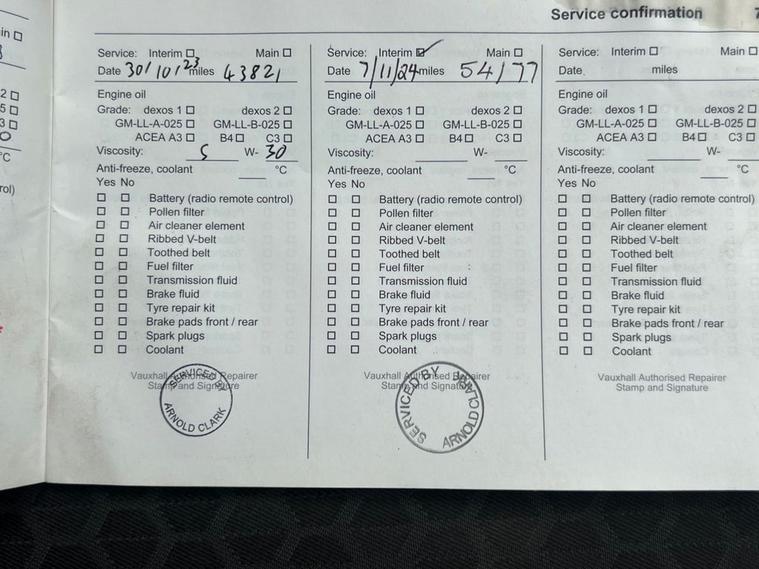 Service confirmation 7
in
Service: Interim Main
Date 30/10/23 miles 43821
Engine oil
Grade: dexos 1 dexos 2
GM-LL-A-025 GM-LL-B-025
ACEA A3 B4 C3
Viscosity: 5 W- 30
Anti-freeze, coolant °C
Yes No
Battery (radio remote control)
Pollen filter
Air cleaner element
Ribbed V-belt
Toothed belt
Fuel filter
Transmission fluid
Brake fluid
Tyre repair kit
Brake pads front / rear
Spark plugs
Coolant
Vauxhall Authorised Repairer
Stamp and Signature
SERVICED BY
ARNOLD CLARK
Service: Interim Main
Date 7/11/24 miles 54177
Engine oil
Grade: dexos 1 dexos 2
GM-LL-A-025 GM-LL-B-025
ACEA A3 B4 C3
Viscosity: W-
Anti-freeze, coolant °C
Yes No
Battery (radio remote control)
Pollen filter
Air cleaner element
Ribbed V-belt
Toothed belt
Fuel filter
Transmission fluid
Brake fluid
Tyre repair kit
Brake pads front / rear
Spark plugs
Coolant
Vauxhall Authorised Repairer
Stamp and Signature
SERVICED BY
ARNOLD CLARK
Service: Interim Main
Date miles
Engine oil
Grade: dexos 1 dexos 2
GM-LL-A-025 GM-LL-B-025
ACEA A3 B4 C3
Viscosity: W-
Anti-freeze, coolant °C
Yes No
Battery (radio remote control)
Pollen filter
Air cleaner element
Ribbed V-belt
Toothed belt
Fuel filter
Transmission fluid
Brake fluid
Tyre repair kit
Brake pads front / rear
Spark plugs
Coolant
Vauxhall Authorised Repairer
Stamp and Signature